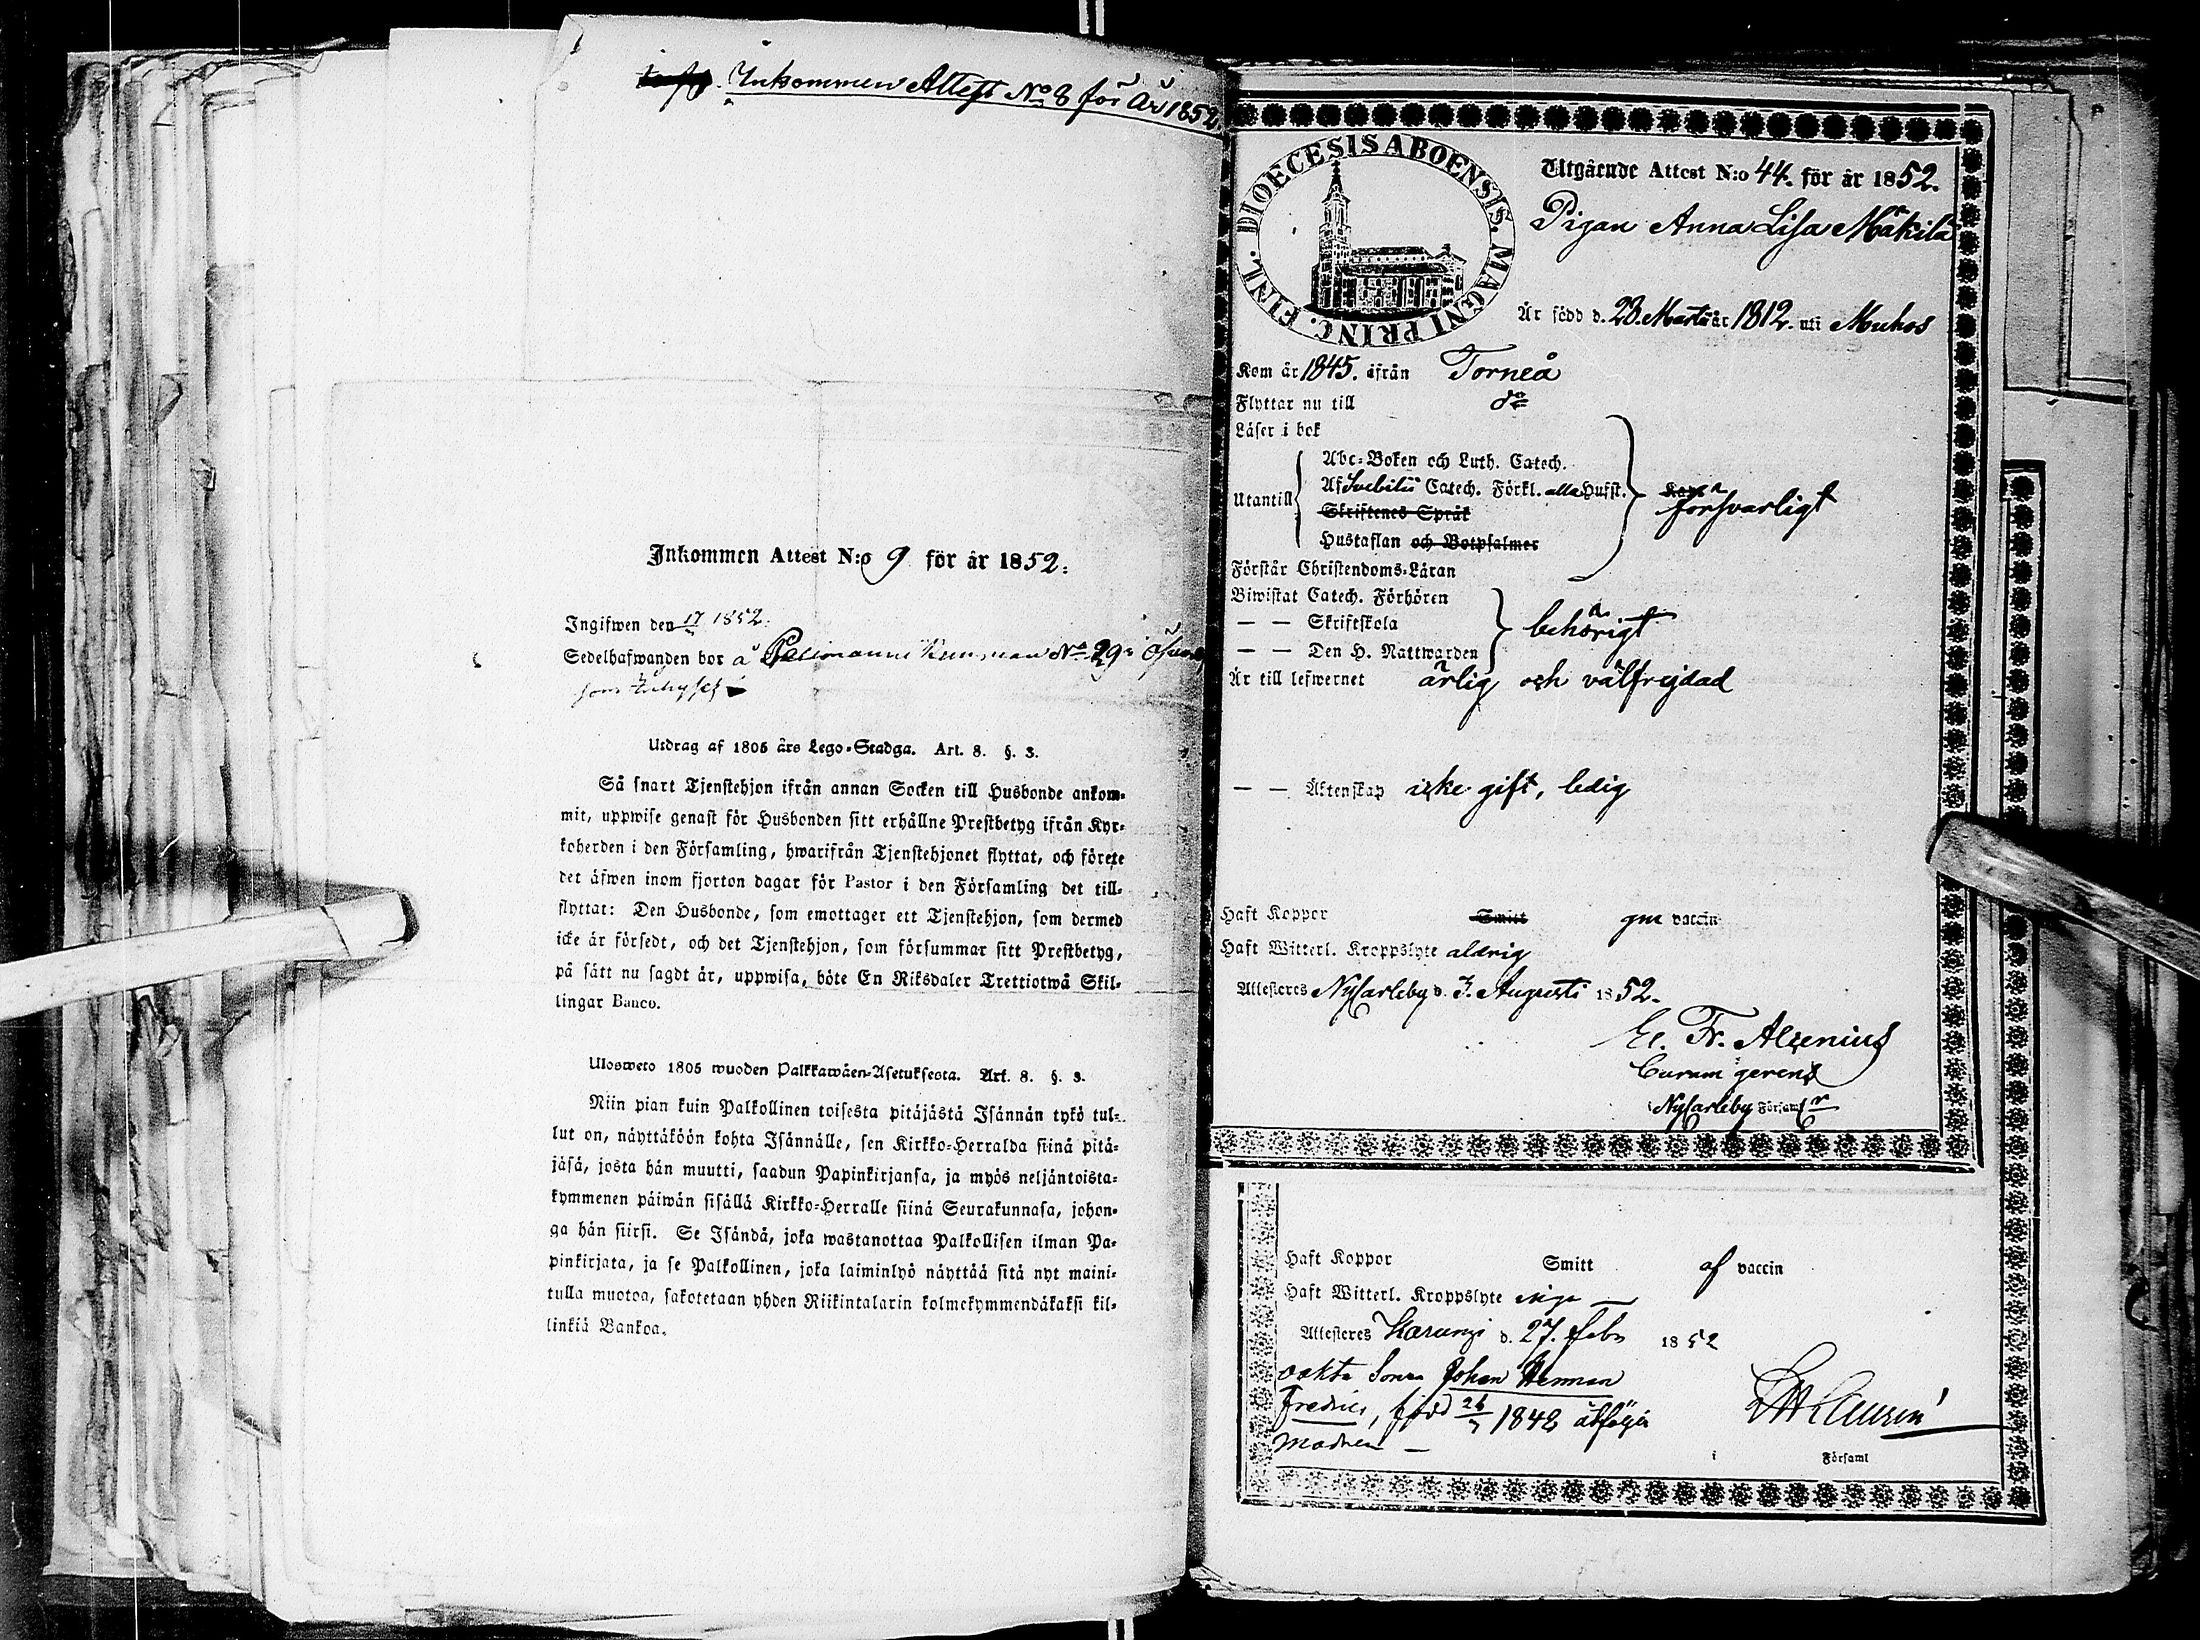 Inkommen Attest No 8 för år 1852.
Inkommen Attest N:o 9 för år 1852.
Ingifwen den 17 1852.
Sedelhafwanden bor å No 29 i
Utdrag af 1805 års Lego-Stadga. Art. 8. §. 3.
Så snart Tjenstehjon ifrån annan Socken till Husbonde ankom-
mit, uppwise genast för Husbonden sitt erhållne Prestbetyg ifrån Kyr-
koherden i den Församling, hwarifrån Tjenstehjonet flyttat, och förete
det äfwen inom fjorton dagar för Pastor i den Församling det till-
flyttat: Den Husbonde, som emottager ett Tjenstehjon, som dermed
icke är försedt, och det Tjenstehjon, som försummar sitt Prestbetyg,
på sätt nu sagdt är, uppwisa, böte En Riksdaler Trettiotwå Skil-
lingar Banco.
Ulosweto 1805 wuoden Palkkawäen-Asetuksesta. Art. 8. §. 3.
Niin pian kuin Palkollinen toisesta pitäjästä Isännän tykö tul-
lut on, näyttäköön kohta Isännälle, sen Kirkko-Herralda siinä pitä-
jäsä, josta hän muutti, saadun Papinkirjansa, ja myös neljäntoista-
kymmenen päiwän sisällä Kirkko-Herralle siinä Seurakunnasa, johon-
ga hän siirsi. Se Isändä, joka wastanottaa Palkollisen ilman Pa-
pinkirjata, ja se Palkollinen, joka laiminlyö näyttää sitä nyt maini-
tulla muotoa, sakotetaan yhden Riikintalarin kolmekymmendäkaksi kil-
linkiä Bankoa.
DIOECESIS ABOENSIS. MAGNI PRINC. FINL.
Utgående Attest N:o 44. för år 1852.
Pigan Anna Lisa Mäkilä
Är född d. 28. Martii år 1812. uti Muhos
Kom år 1845. ifrån Torneå
Flyttar nu till do
Läser i bok
Abc-Boken och Luth. Catech.
Utantill Af Svebilii Catech. Förkl. alla Hufst. försvarligt
Skriftenes Språk
Hustaflan och Botpsalmer
Förstår Christendoms-Läran
Biwistat Catech. Förhören
— — Skriftskola behörigt
— — Den H. Nattwarden
Är till lefwernet ärlig och välfrejdad
— — Äktenskap icke gift, ledig
Haft Koppor Smitt gm vaccin
Haft Witterl. Kroppslyte aldrig
Attesteres Nycarleby d. 3. Augusti 1852.
El. Fr. Alcenius
Curam gerens
i Nycarleby Församl
Haft Koppor Smitt af vaccin
Haft Witterl. Kroppslyte
Attesteres Karungi d. 27. febr 1852
oäkta Sonen Johan Herman
Fredric, född 26/7 1848 åtföljer
Modren —
Församl